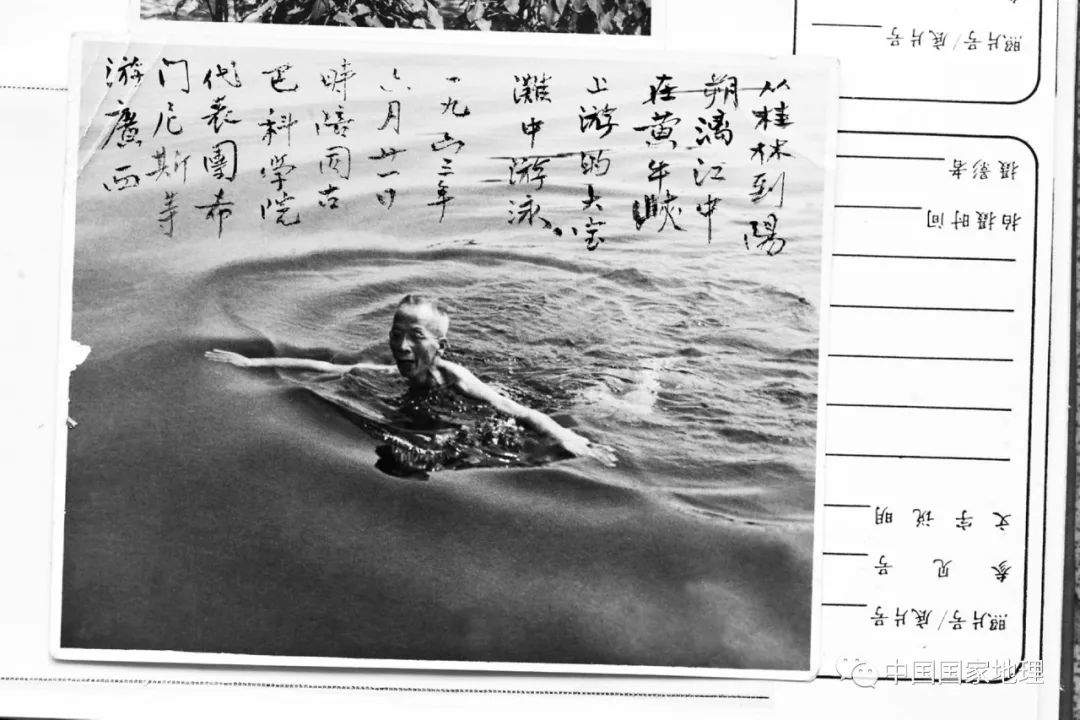 从桂林到陽
朔漓江中
在黄牛峡
上游的大宝
灘中游泳
一九六三年
六月廿一日
時陪同古
巴科学院
代表團希
门尼斯等
游廣西
照片号/底片号
摄影者
拍摄时间
文字说明
参见号
照片号/底片号
中国国家地理